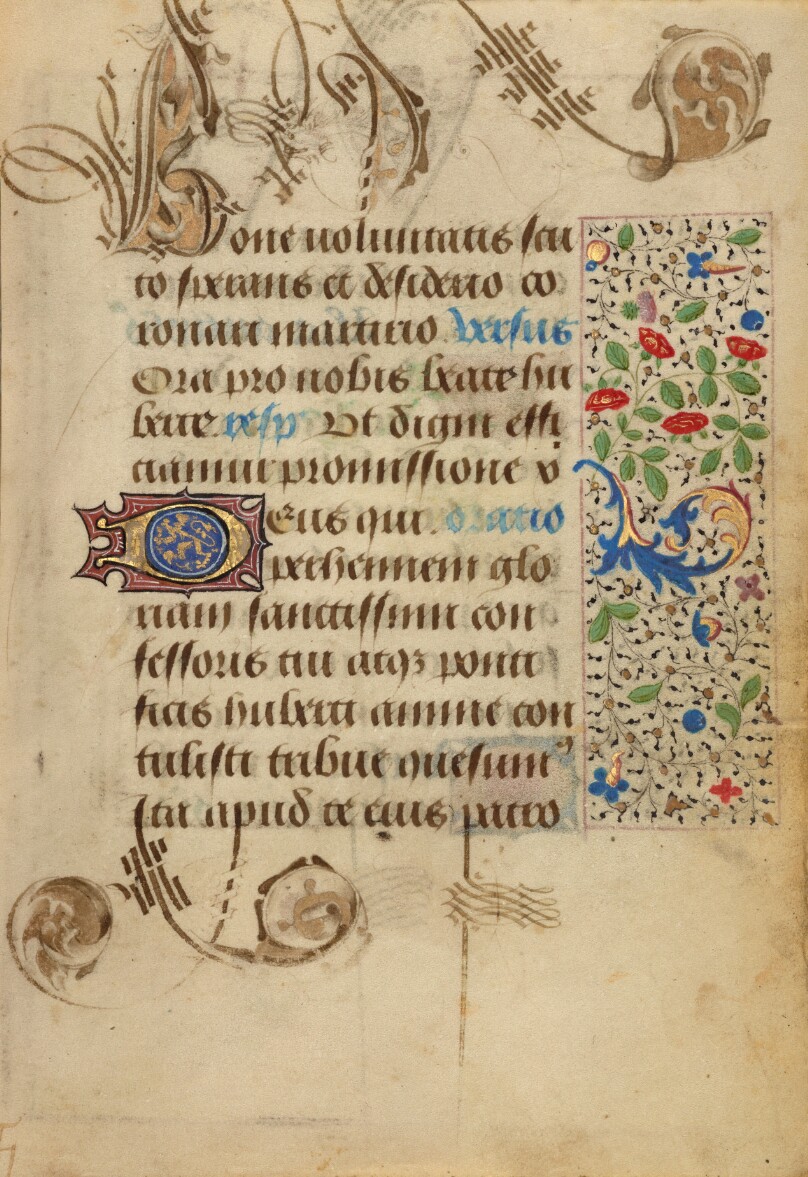 Bone uoluntatis scu
to sperans et desiderio co
ronari martirio. Versus
Ora pro nobis beate hu
berte. resp Vt digni effi
ciamur promissione x
Deus qui. oratio
perhennem glo
riam sanctissimi con
fessoris tui atqꝫ ponti
ficis huberti anime con
tulisti tribue quesumꝰ
Ita apud te eius patro